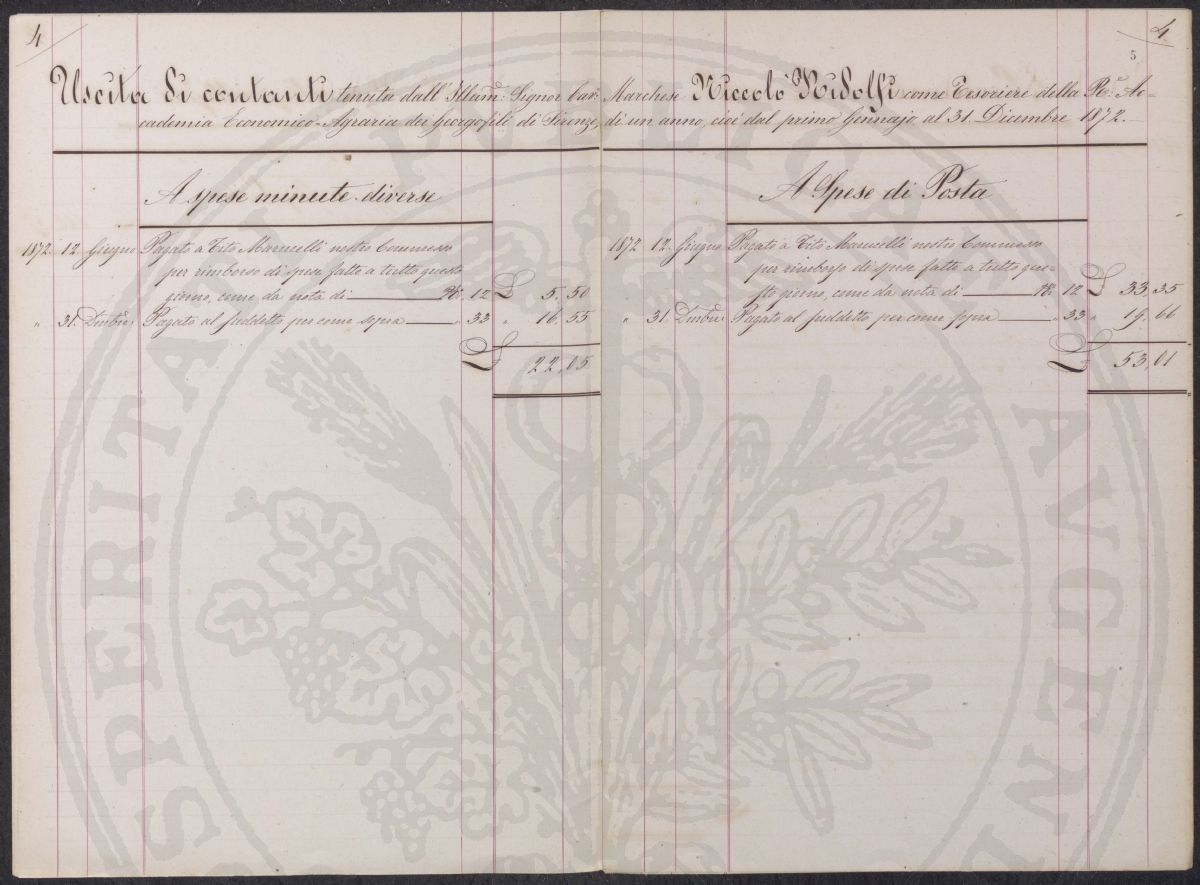 4
4
5
Uscita di contanti tenuta dall' Illam: Signor Cav: Marchese Niccolò Ridolfi come Tesoriere della Re: Ac-
cademia Economico-Agraria dei Georgofili di Firenze, di un anno, cioè dal primo Gennajo al 31. Dicembre 1872.
A spese minute diverse
1872. 12. Giugno Pagato a Tito Marucelli nostro Commesso
per rimborso di spese fatte a tutto questo
giorno, come da nota di No. 12 L 5. 50
" 31. Dmbre: Pagato al suddetto per come sopra " 33 " 16. 55
L 22,05
A Spese di Posta
1872 12. Giugno Pagato a Tito Marucelli nostro Commesso
per rimborso di spese fatte a tutto que-
sto giorno, come da nota di No. 12 L 33, 35
" 31. Dmbre: Pagato al suddetto per come sopra " 33 " 19. 66
L 53,01
PROSPERITATI PUBLICAE AVGENDAE